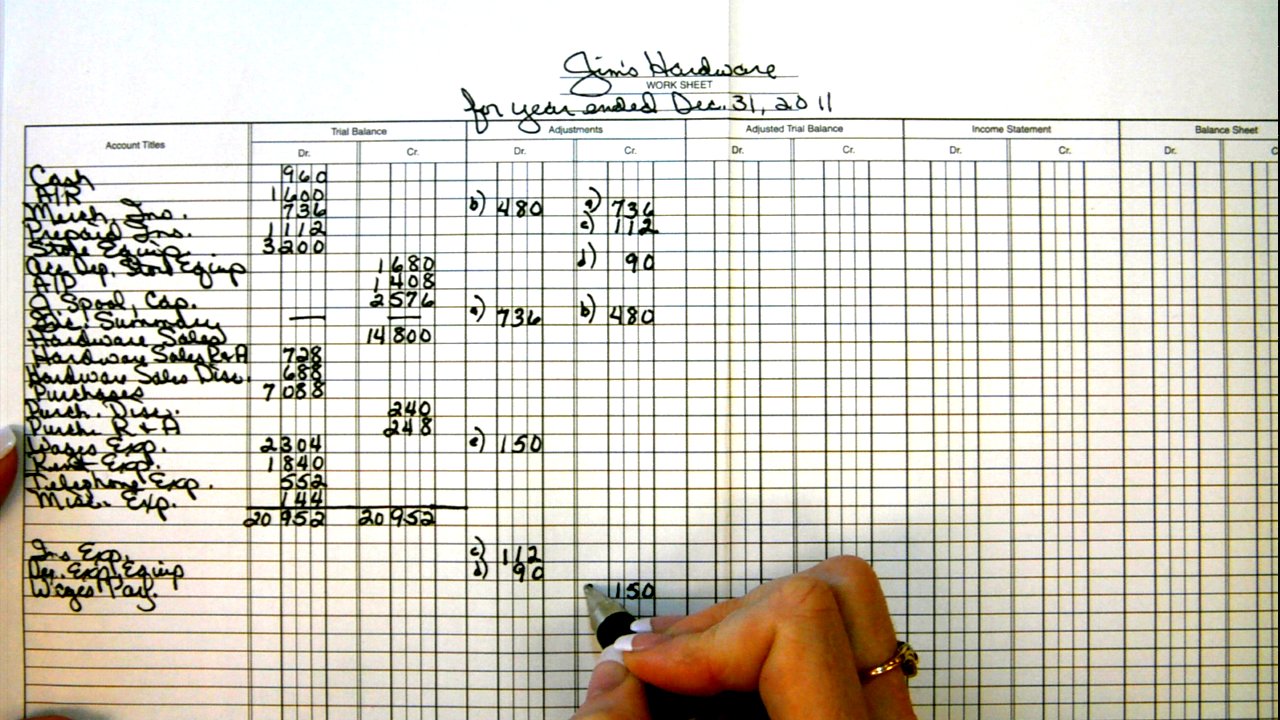 Jim's Hardware
WORK SHEET
for year ended Dec. 31, 2011
Account Titles Trial Balance Adjustments Adjusted Trial Balance Income Statement Balance Sheet
Dr. Cr. Dr. Cr. Dr. Cr. Dr. Cr. Dr. C
Cash 960
A/R 1600
Merch. Inv. 736 b) 480 a) 736
Prepaid Ins. 1112 c) 112
Store Equip. 3200
Acc. Dep. Store Equip 1680 d) 90
A/P 1408
J. Spool, Cap. 2576
Inc. Summary — — a) 736 b) 480
Hardware Sales 14800
Hardware Sales R+A 728
Hardware Sales Disc. 688
Purchases 7088
Purch. Disc. 240
Purch. R+A 248
Wages Exp. 2304 e) 150
Rent Exp. 1840
Telephone Exp. 552
Misc. Exp. 144
20952 20952
Ins Exp. c) 112
Dep. Exp. Equip d) 90
Wages Pay. 150